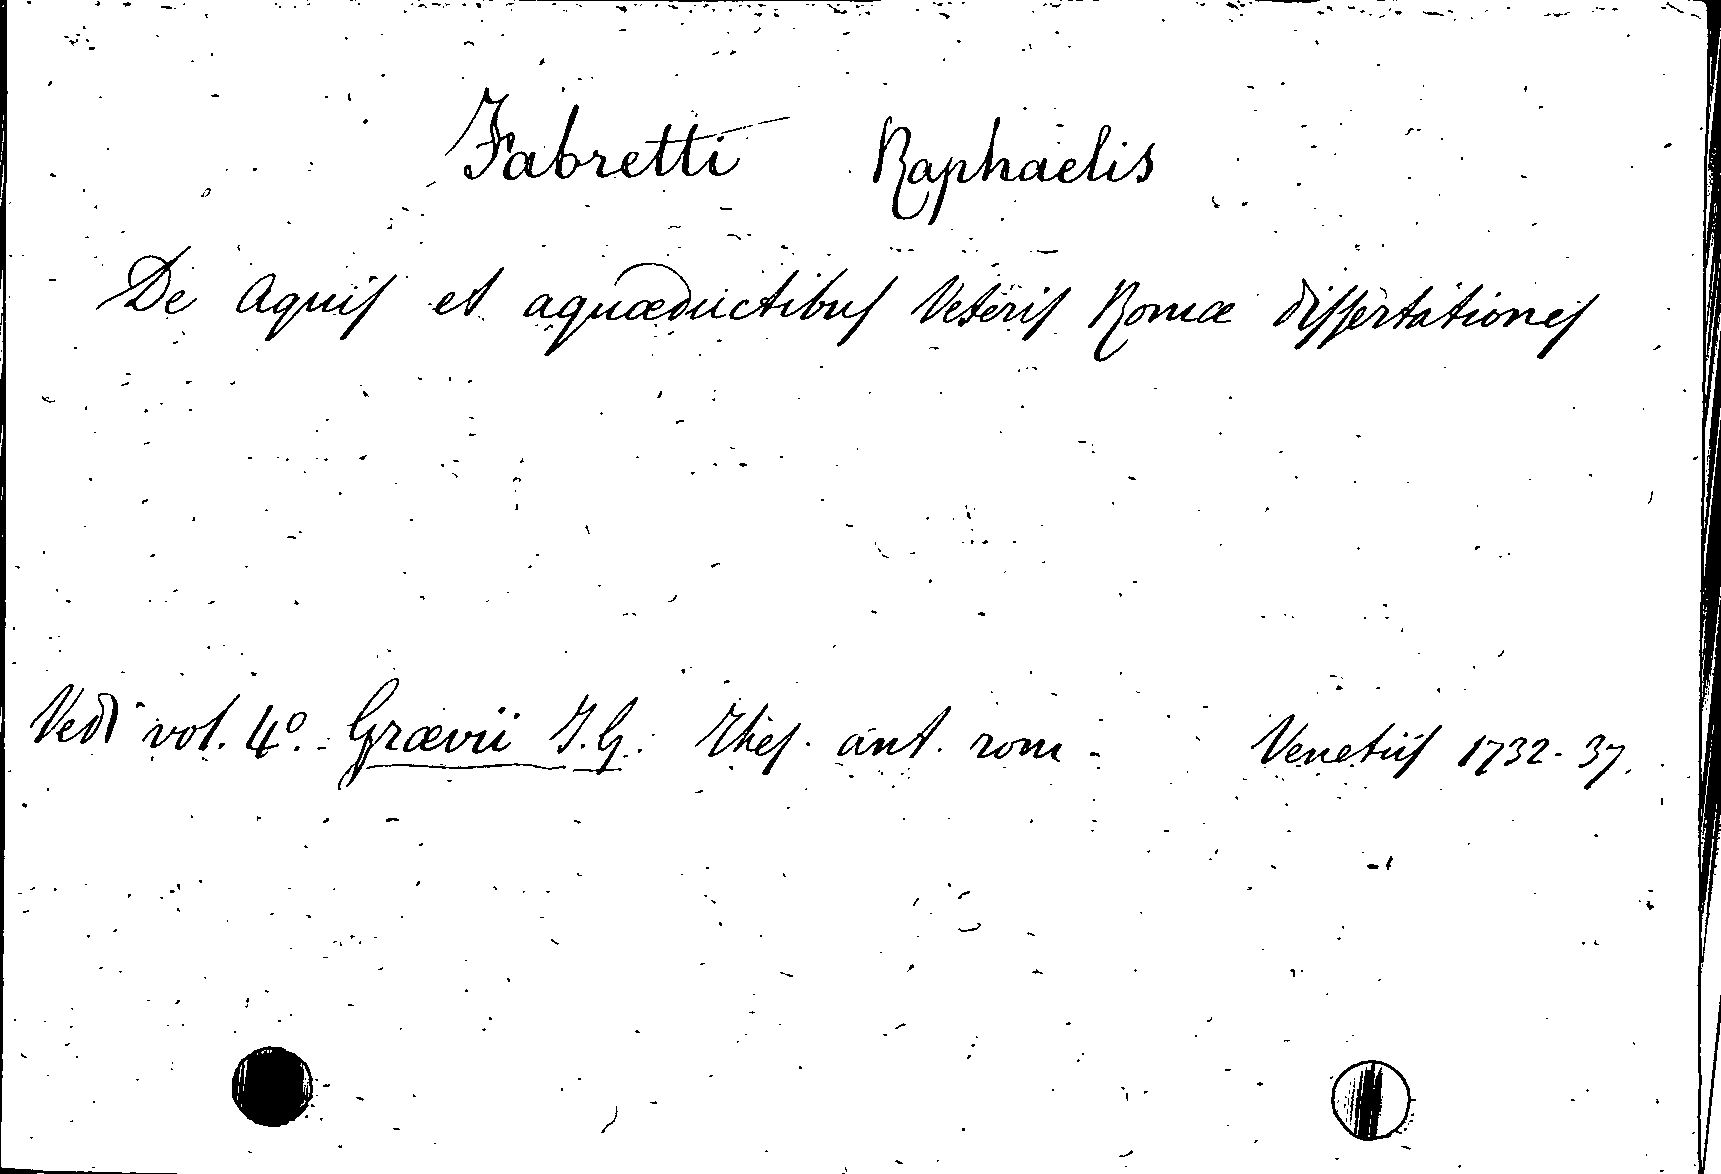 Fabretti Raphaelis
De Aquis et aquæductibus Veteris Romæ dissertationes
Vedi vol. 4º. Grævii J. G. Thes. ant. rom. Venetiis 1732-37.